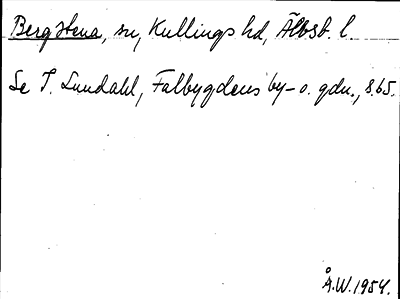 Bergstena, sn, Kullings hd, Älvsb. l.
Se I. Lundahl, Falbygdens by- o. gdn., s. 65.
Å.W. 1954.